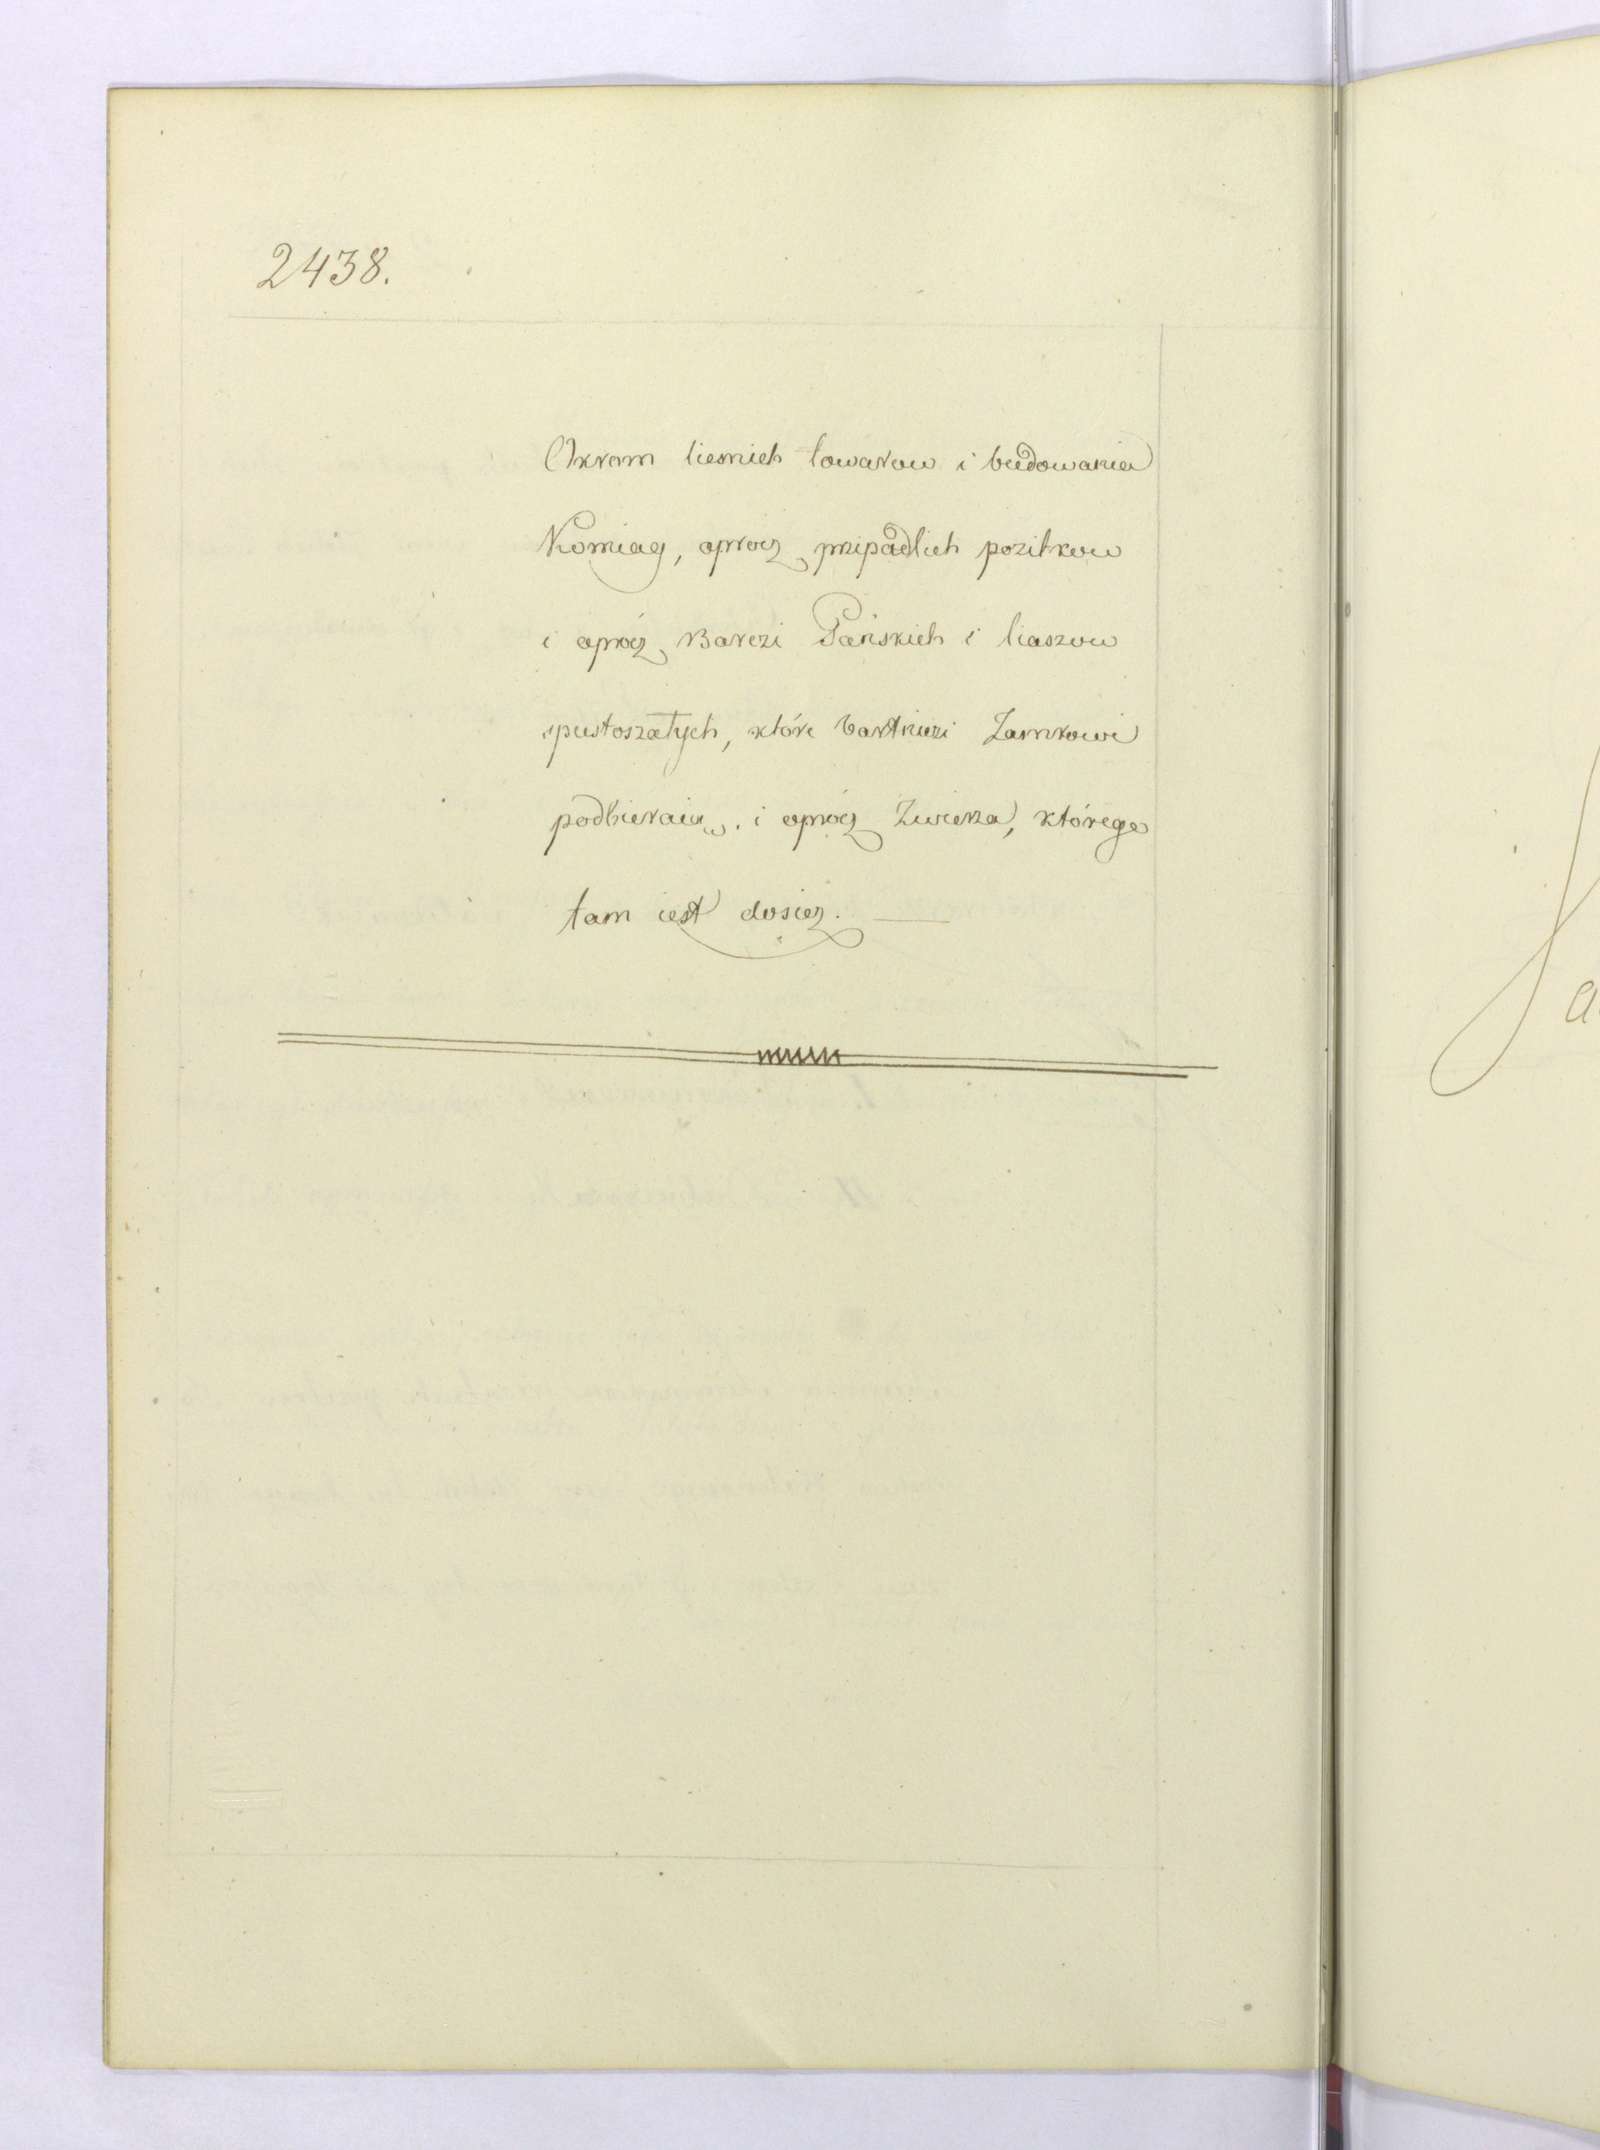 2438.
Okrom liesnich towarow i budowania
Komieag, oprocz przipadlich pozitkow
i oprócz Barczi Pańskich i liaszow
spustoszałych, które bartniczi Zamkowi
podbieraią, i oprócz Zwierza, którego
tam iest dosicz.